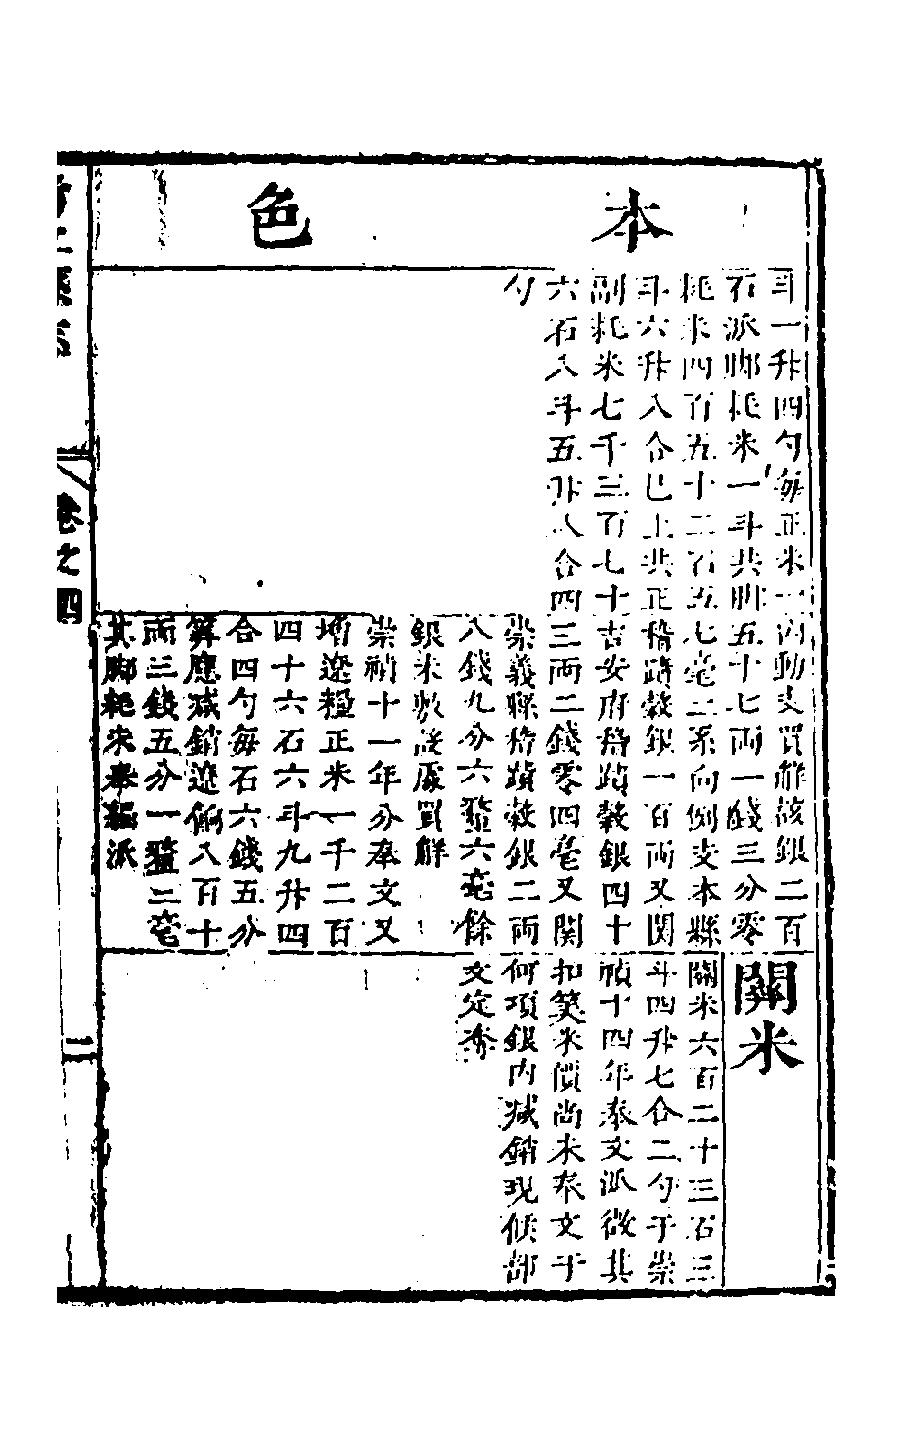 本色
斗一升四勺每正米一
石派脚耗米一斗共脚
耗米四百五十二石五
斗六升八合已上共正
副耗米七千三百七十
六石八斗五升八合四
勺
內動支買解該銀二百
五十七兩一錢三分零
七毫二系向例支本縣
稽蹟穀銀一百兩又關
吉安府稽蹟穀銀四十
三兩二錢零四毫又關
崇義縣稽蹟穀銀二兩
八錢九分六釐六毫餘
銀米敷設處買解
崇禎十一年分奉文又
增遼糧正米一千二百
四十六石六斗九升四
合四勺每石六錢五分
算應减銷遼餉八百十
兩三錢五分一釐三毫
其脚耗米奉派
關米
關米六百二十三石三
斗四升七合二勺于崇
禎十四年奉文派徵其
扣筭米價尚未奉文于
何項銀內减銷現候部
文定奪
縣志
卷之四
二